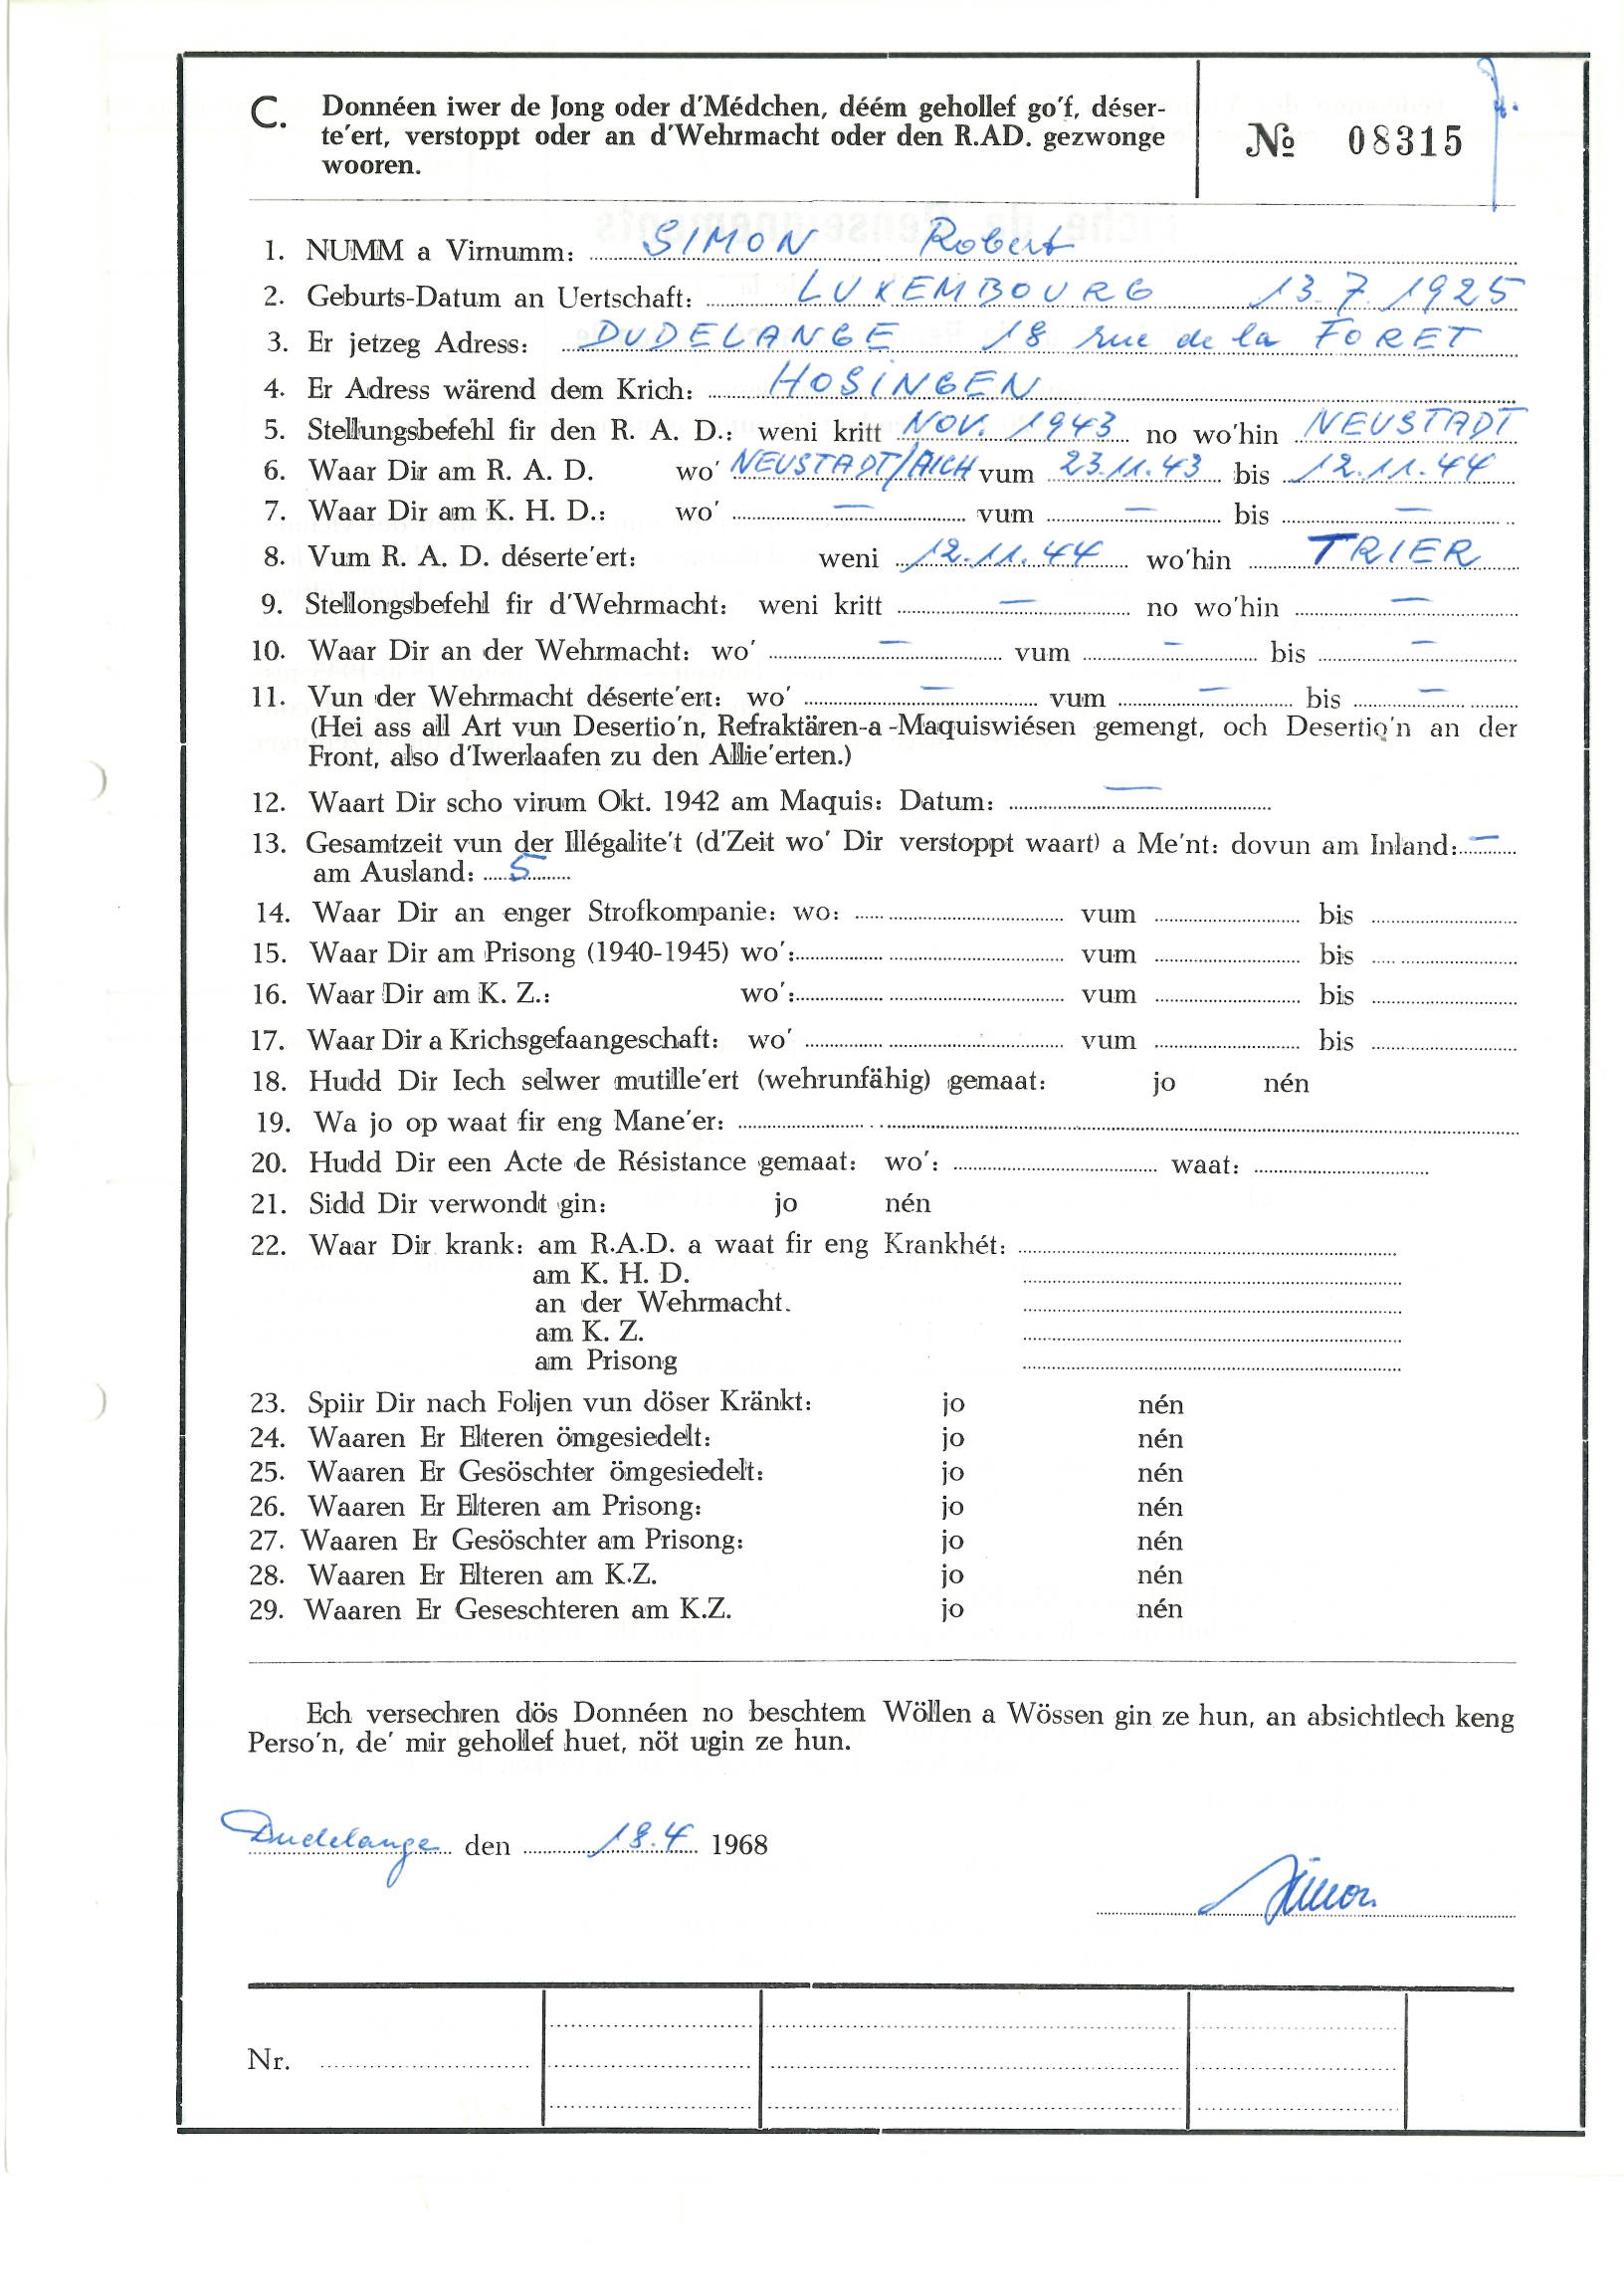 C. Donnéen iwer de Jong oder d'Médchen, déém gehollef go'f, déser-
te'ert, verstoppt oder an d'Wehrmacht oder den R.AD. gezwonge
wooren.
№ 08315
1. NUMM a Virnumm: SIMON Robert
2. Geburts-Datum an Uertschaft: LUXEMBOURG 13.7.1925
3. Er jetzeg Adress: DUDELANGE 18 rue de la FORET
4. Er Adress wärend dem Krich: HOSINGEN
5. Stellungsbefehl fir den R. A. D.: weni kritt NOV. 1943 no wo'hin NEUSTADT
6. Waar Dir am R. A. D. wo' NEUSTADT/AICH vum 23.11.43 bis 12.11.44
7. Waar Dir am K. H. D.: wo' — vum — bis —
8. Vum R. A. D. déserte'ert: weni 12.11.44 wo'hin TRIER
9. Stellongsbefehl fir d'Wehrmacht: weni kritt — no wo'hin —
10. Waar Dir an der Wehrmacht: wo' — vum — bis —
11. Vun der Wehrmacht déserte'ert: wo' — vum — bis —
(Hei ass all Art vun Desertio'n, Refraktären-a -Maquiswiésen gemengt, och Desertio'n an der
Front, also d'Iwerlaafen zu den Allie'erten.)
12. Waart Dir scho virum Okt. 1942 am Maquis: Datum: —
13. Gesamtzeit vun der Illégalite't (d'Zeit wo' Dir verstoppt waart) a Me'nt: dovun am Inland: —
am Ausland: 5
14. Waar Dir an enger Strofkompanie: wo: vum bis
15. Waar Dir am Prisong (1940-1945) wo': vum bis
16. Waar Dir am K. Z.: wo': vum bis
17. Waar Dir a Krichsgefaangeschaft: wo' vum bis
18. Hudd Dir Iech selwer mutille'ert (wehrunfähig) gemaat: jo nén
19. Wa jo op waat fir eng Mane'er:
20. Hudd Dir een Acte de Résistance gemaat: wo': waat:
21. Sidd Dir verwondt gin: jo nén
22. Waar Dir krank: am R.A.D. a waat fir eng Krankhét:
am K. H. D.
an der Wehrmacht.
am K. Z.
am Prisong
23. Spiir Dir nach Foljen vun döser Kränkt: jo nén
24. Waaren Er Elteren ömgesiedelt: jo nén
25. Waaren Er Gesöschter ömgesiedelt: jo nén
26. Waaren Er Elteren am Prisong: jo nén
27. Waaren Er Gesöschter am Prisong: jo nén
28. Waaren Er Elteren am K.Z. jo nén
29. Waaren Er Geseschteren am K.Z. jo nén
Ech versechren dös Donnéen no beschtem Wöllen a Wössen gin ze hun, an absichtlech keng
Perso'n, de' mir gehollef huet, nöt ugin ze hun.
Dudelange den 18.4 1968
Simon
Nr.